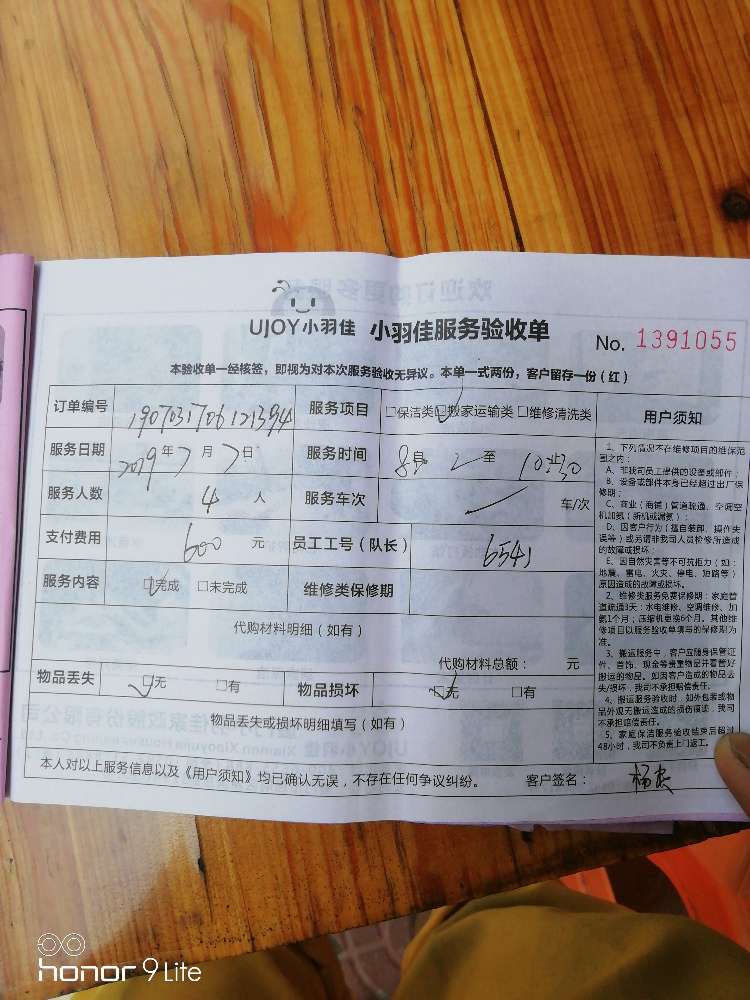 UJOY小羽佳 小羽佳服务验收单 No. 1391055
本验收单一经核签，即视为对本次服务验收无异议。本单一式两份，客户留存一份（红）
订单编号 1907031706121394 服务项目 □保洁类 □搬家运输类 □维修清洗类
服务日期 2019年7月7日 服务时间 至
服务人数 4 人 服务车次 车/次
支付费用 600 元 员工工号（队长） 6541
服务内容 □完成 □未完成 维修类保修期
代购材料明细（如有）
代购材料总额： 元
物品丢失 □无 □有 物品损坏 □无 □有
物品丢失或损坏明细填写（如有）
本人对以上服务信息以及《用户须知》均已确认无误，不存在任何争议纠纷。 客户签名：
用户须知
1、下列情况不在维修项目的维保范
围之内：
A、非我司员工提供的设备或部件；
B、设备或部件本身已经超过出厂保
修期；
C、商业（商铺）管道疏通、空调空
机加氨（新机或漏氨）；
D、因客户行为（擅自装卸、操作失
误等）或另请非我司人员检修所造成
的故障或损坏；
E、因自然灾害等不可抗拒力（如：
地震、雷电、火灾、停电、短路等）
原因造成的故障或损坏。
2、维修类服务免费保修期：家庭管
道疏通3天；水电维修、空调维修、加
氨1个月；压缩机更换6个月。其他维
修项目以服务验收单填写的保修期为
准。
3、搬运服务中，客户应随身保管证
件、首饰、现金等贵重物品并看管好
搬运的物品。如因客户造成的物品丢
失/损坏，我司不承担赔偿责任。
4、搬运服务验收时，如外包装或物
品外观无搬运造成的损伤痕迹，我司
不承担赔偿责任。
5、家庭保洁服务验收结束后超过
48小时，我司不负责上门返工。
honor 9 Lite